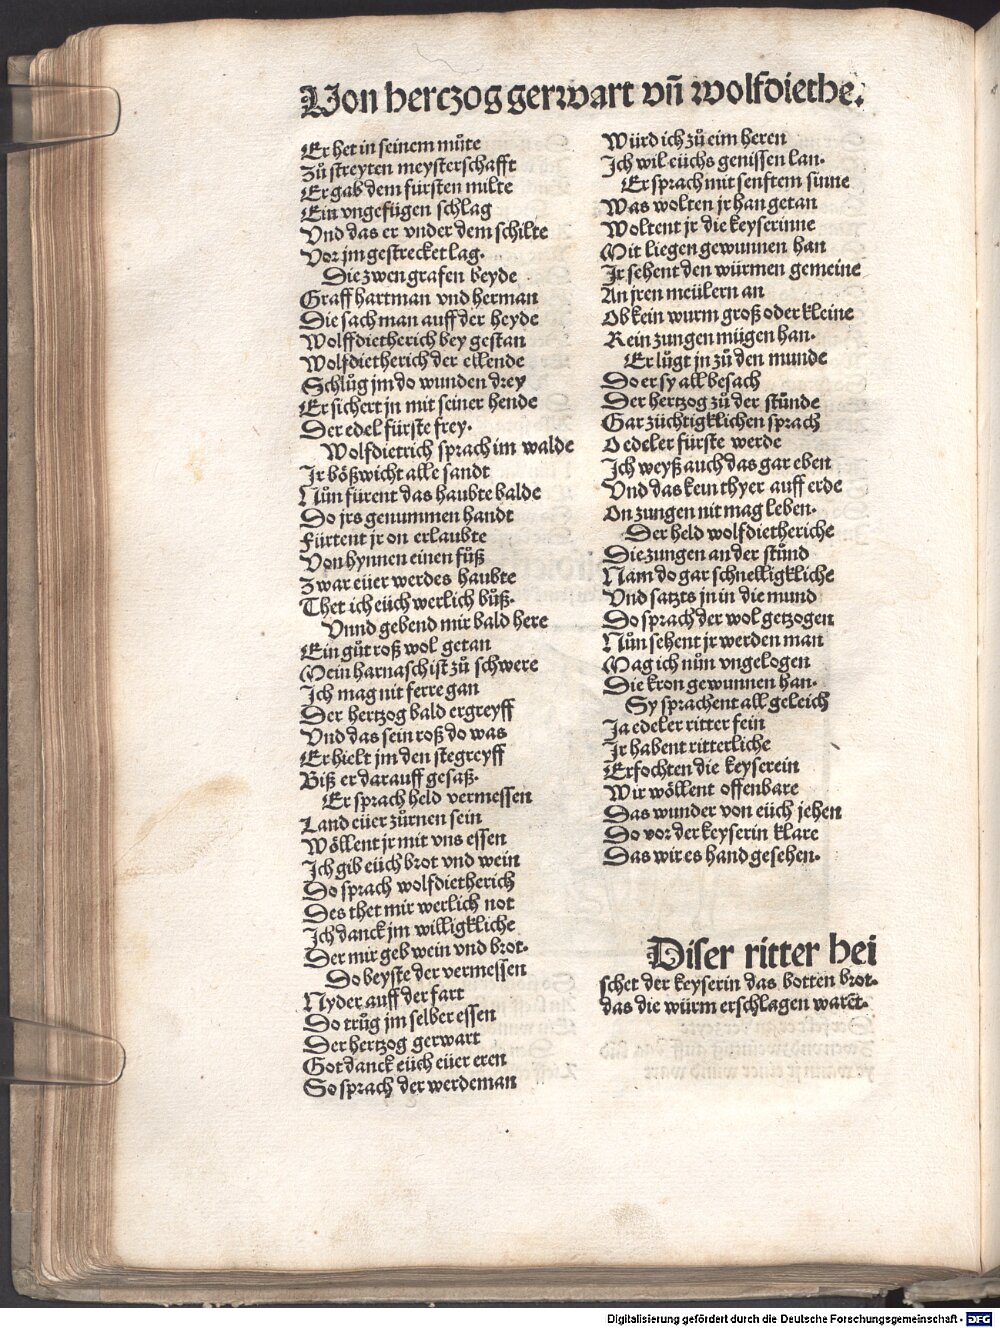 Von herczog gerwart vñ wolfdiethe.
Er het in seinem můte
Zů streyten meysterschafft
Er gab dem fürsten milte
Ein vngefügen schlag
Vnd das er vnder dem schilte
Vor jm gestrecket lag.
Die zwen grafen beyde
Graff hartman vnd herman
Die sach man auff der heyde
Wolffdietherich bey gestan
Wolfdietherich der ellende
Schlůg jm do wunden drey
Er sichert jn mit seiner hende
Der edel fürste frey.
Wolfdietrich sprach im walde
Jr bößwicht alle sandt
Nůn fürent das haubte balde
Do jrs genummen handt
Fürtent jr on erlaubte
Von hynnen einen fůß
Zwar eüer werdes haubte
Thet ich eüch werlich bůß.
Vnnd gebend mir bald here
Ein gůt roß wol getan
Mein harnasch ist zů schwere
Ich mag nit ferre gan
Der hertzog bald ergreyff
Vnd das sein roß do was
Er hielt jm den stegreyff
Biß er darauff gesaß.
Er sprach held vermessen
Land eüer zürnen sein
Wöllent jr mit vns essen
Ich gib eüch brot vnd wein
Do sprach wolfdietherich
Des thet mir werlich not
Ich danck jm willigkliche
Der mir geb wein vnd brot.
Do beyste der vermessen
Nyder auff der fart
Do trůg jm selber essen
Der hertzog gerwart
Got danck eüch eüer eren
So sprach der werdeman
Würd ich zů eim heren
Ich wil eüchs genissen lan.
Er sprach mit senftem sinne
Was wolten jr han getan
Woltent jr die keyserinne
Mit liegen gewunnen han
Jr sehent den würmen gemeine
An jren meülern an
Ob kein wurm groß oder kleine
Kein zungen mügen han.
Er lůgt jn zů den munde
Do er sy all besach
Der hertzog zů der stůnde
Gar züchtigklichen sprach
O edeler fürste werde
Ich weyß auch das gar eben
Vnd das kein thyer auff erde
On zungen nit mag leben.
Der held wolfdietheriche
Die zungen an der stůnd
Nam do gar schnelligkliche
Vnd satzts jn in die mund
Do sprach der wol getzogen
Nůn sehent jr werden man
Mag ich nůn vngelogen
Die kron gewunnen han.
Sy sprachent all geleich
Ja edeler ritter fein
Jr habent ritterliche
Erfochten die keyserein
Wir wöllent offenbare
Das wunder von eüch jehen
Do vor der keyserin klare
Das wir es hand gesehen.
Diser ritter hei
schet der keyserin das botten brot.
das die würm erschlagen warēt.
Digitalisierung gefördert durch die Deutsche Forschungsgemeinschaft - DFG